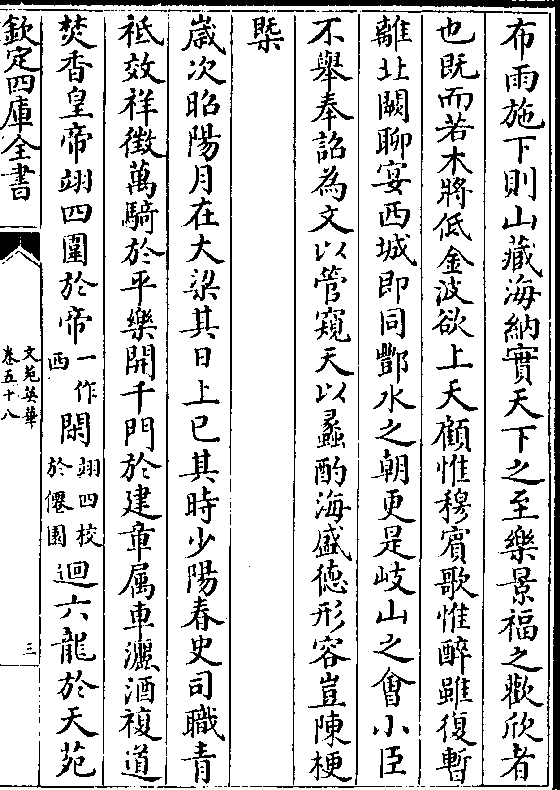 布雨施下則山藏海納實天下之至樂景福之歡欣者
也既而若木將低金波欲上天顧惟穆賓歌惟醉雖復暫
離北闕聊宴西城即同酆水之朝更是岐山之會小臣
不舉奉詔為文以管窺天以蠡酌海盛德形容豈陳梗
槩
歲次昭陽月在大梁其日上巳其時少陽春史司職青
祇效祥徵萬騎於平樂開千門於建章属車灑酒複道
焚香皇帝翊四圍於帝一作西閑翊四校於僊園迴六龍於天苑
欽定四庫全書
文苑英華
卷五十八
三